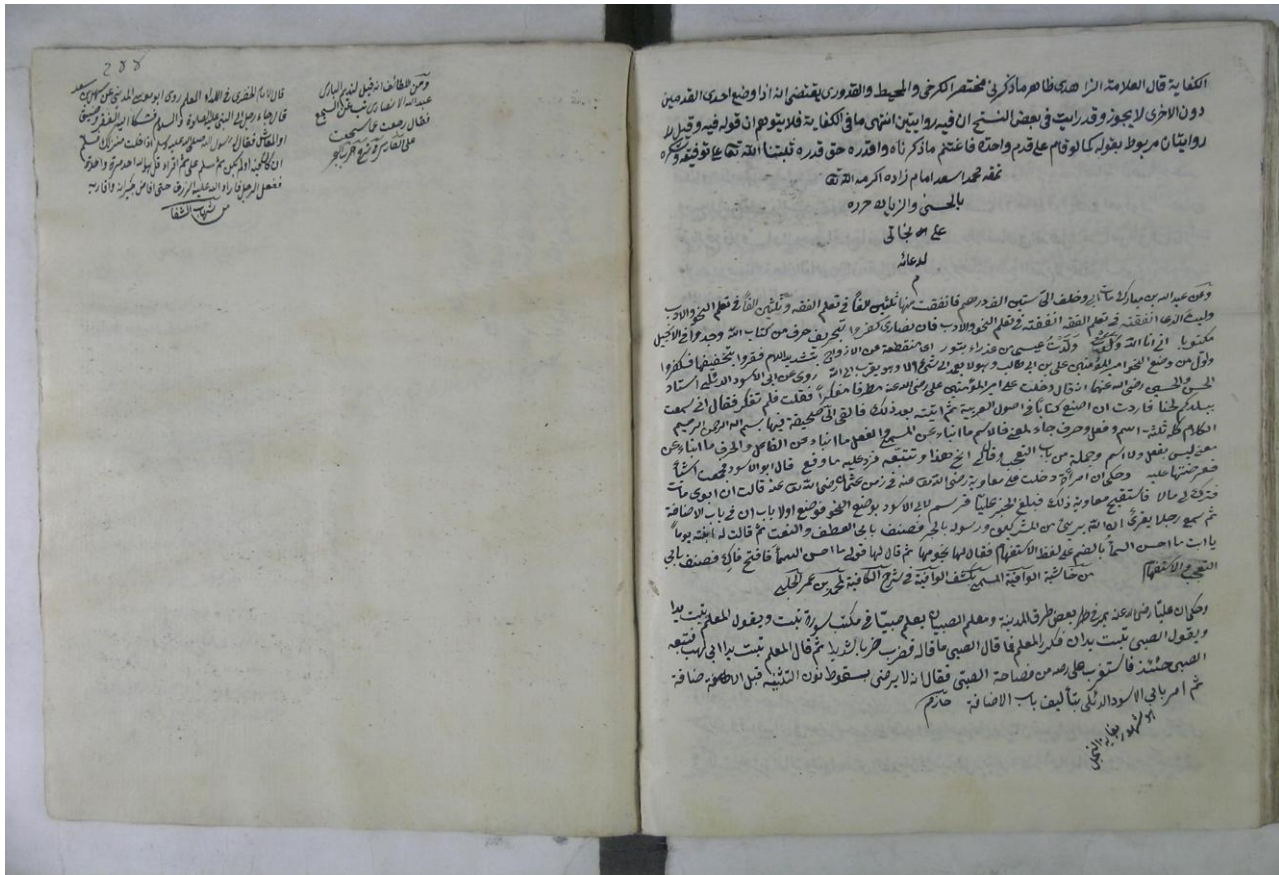 الكفاية قال العلامة الزاهدى ظاهر ما ذكر فى مختصر الكرخى والمحيط والقدورى يقتضى انه اذا وضع احدى القدمين
دون الاخرى لا يجوز وقد رايت فى بعض النسخ ان فيه روايتين انتهى ما فى الكفاية فلا يتوهم ان قوله فيه وقيل لا
روايتان مربوط بقوله كما لو قام على قدم واحدة فاغتنم ما ذكرناه واقدره حق قدره ثبتنا الله تعالى على توفيقه
نمقه محمد اسعد امام زاده اكرمه الله تعالى
بالحسنى والزيادة حرره
على
م
وعن عبدالله بن مبارك مات ابى وخلف الى ستين الف درهم فانفقت منها ثلثين الفا فى تعلم الفقه وثلثين الفا فى تعلم النحو والادب
وليت الذى انفقته فى تعلم الفقه انفقته فى تعلم النحو والادب فان نصارى كفروا بتحريف حرف من كتاب الله وجدوا فى الانجيل
مكتوبا انى انا الله ولدت عيسى من عذراء بتول اى منقطعة عن الازواج بتشديد اللام فقروا بتخفيفها فكفروا
واول من وضع النحو امير المؤمنين على بن ابى طالب روى عن ابى الاسود الدئلى استاد
الحسن والحسين رضى الله عنهما انه قال دخلت على امير المؤمنين على رضى الله عنه مطرقا متفكرا فقلت فلم تفكر فقال انى سمعت
ببلدكم لحنا فاردت ان اصنع كتابا فى اصول العربية ثم اتيته بعد ذلك فالقى الى صحيفة فيها بسم الله الرحمن الرحيم
الكلام كله ثلثة اسم وفعل وحرف جاء لمعنى فالاسم ما انباء عن المسمى والفعل ما انباء عن الفاعل والحرف ما انباء عن
معنى ليس بفعل ولا اسم وجملة من باب التعجب وقال لى انح هذا وتتبعه فزد عليه ما وقع قال ابو الاسود فجمعت اشياء
فعرضتها عليه وحكى ان امرأة دخلت على معاوية رضى الله عنه فى زمن عثمان رضى الله تعالى عنه قالت ان ابوى مات
فترك لى مالا فاستقبح معاوية ذلك فبلغ الخبر عليا فرسم لابى الاسود بوضع النحو فوضع اولا باب ان فى باب الاضافة
ثم سمع رجلا يقرئ ان الله برئ من المشركين ورسوله بالجر فصنف بابى العطف والنعت ثم قالت له ابنته يوما
يا ابت ما احسن السماء بالضم على لفظ الاستفهام فقال لها نجومها ثم قال لها قولى ما احسن السماء فافتح فاك فصنف بابى
التعجب والاستفهام من حاشية الوافية المسمى بكشف الوافية فى شرح الكافية لمحمد بن عمر الحلبى
وحكى ان عليا رضى الله عنه يمر فى بعض طرق المدينة ومعلم الصبيان يعلم صبيا فى مكتب سورة تبت ويقول المعلم تبت يدا
ويقول الصبى تبت يدان فكرر المعلم فما قال الصبى ما قاله فضرب ضربا شديدا ثم قال المعلم تبت يدا ابى لهب فتبعه
الصبى حينئذ فاستغرب على رضه من فصاحة الصبى فقال انه لا يرضى بسقوط نون التثنية قبل الاضافة
ثم امر بابى الاسود الدئلى بتأليف باب الاضافة
ومن اللطائف انه قيل
عبدالله الانصارى
فقال رجعت عما سمعت
قال الامام روى ابو موسى المدينى عن سهل بن سعد
قال جاء رجل الى النبى عليه الصلوة والسلم فشكا اليه الفقر وضيق
او المعاش فقال له رسول الله صلى الله عليه وسلم اذا دخلت منزلك فسلم
ان كان فيه او لم يكن ثم سلم على ثم اقراء قل هو الله احد مرة واحدة
ففعل الرجل فادر الله عليه الرزق حتى افاض على جيرانه واقاربه
من شهاب الشفا